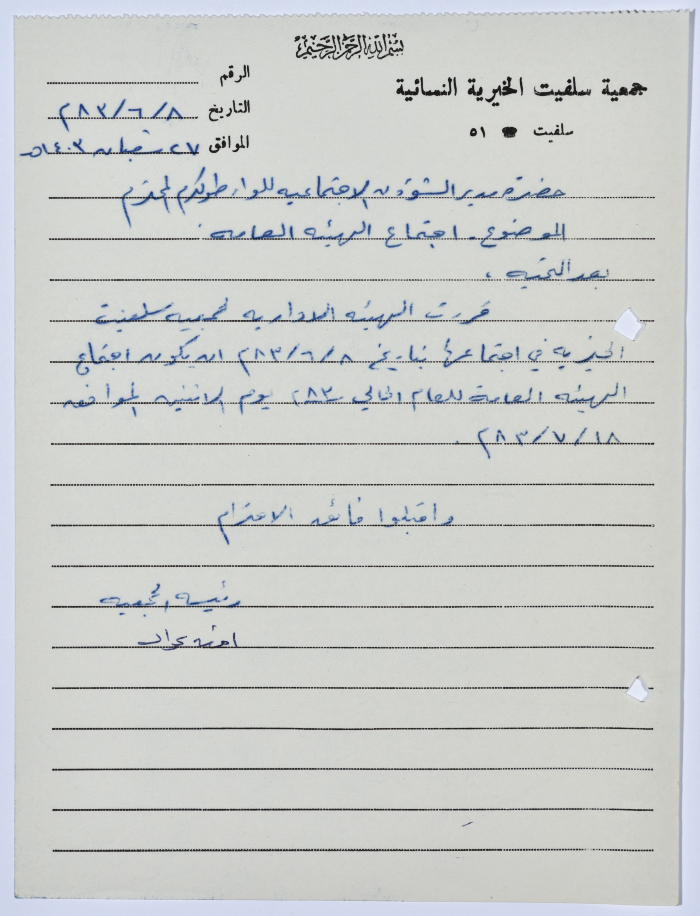 بسم الله الرحمن الرحيم
جمعية سلفيت الخيرية النسائية
سلفيت ☎ ٥١
الرقم
التاريخ ٨/٦/٨٣م
الموافق ٢٧ شعبان ١٤٠٣هـ
حضرة مدير الشؤون الاجتماعية للواء طولكرم المحترم
الموضوع - اجتماع الهيئة العامة .
بعد التحية ،
قررت الهيئة الادارية لجمعية سلفيت
الخيرية في اجتماعها بتاريخ ٨/٦/٨٣م ان يكون اجتماع
الهيئة العامة للعام الحالي ٨٣م يوم الاثنين الموافق
١٨/٧/٨٣م .
واقبلوا فائق الاحترام
رئيسة الجمعية
امنه